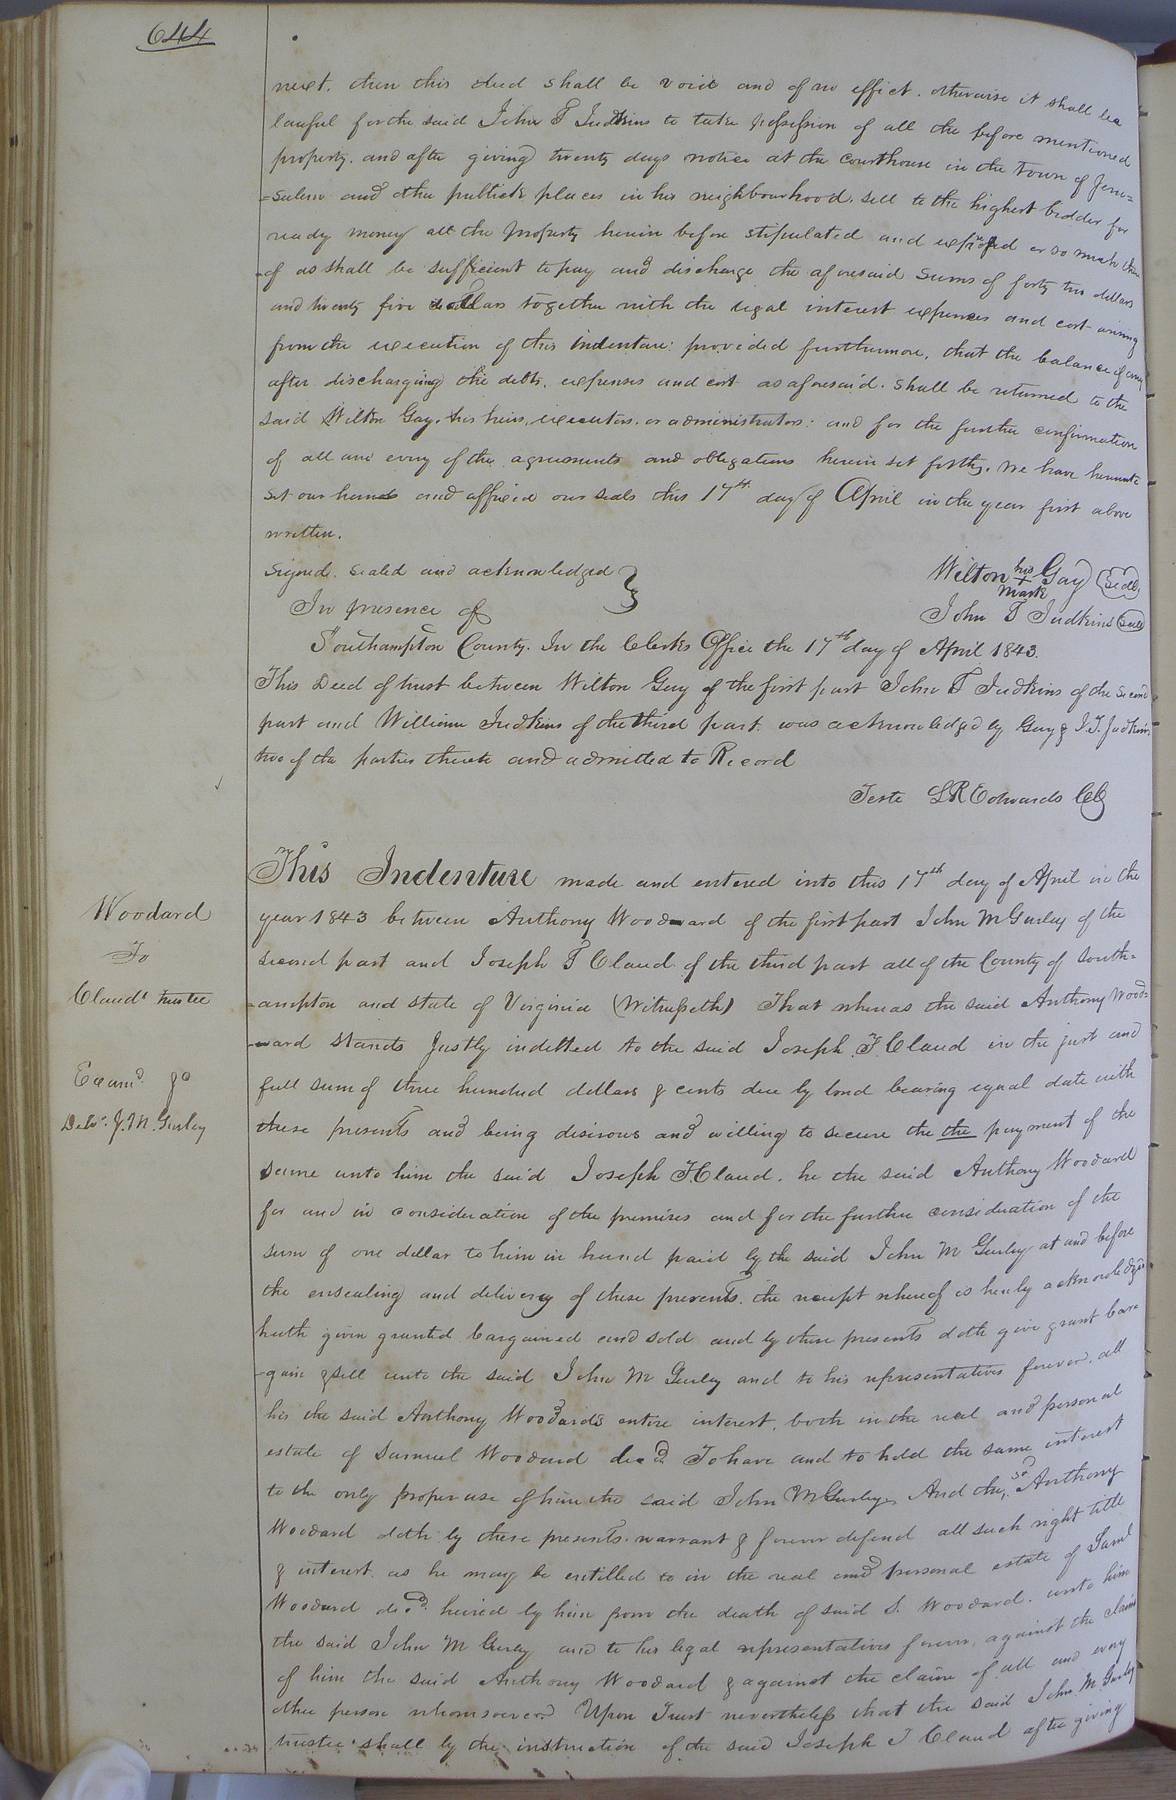 644
next. then this deed shall be void and of no effect. otherwise it shall be
lawful for the said John T Judkins to take possession of all the before mentioned
property. and after giving twenty days notice at the courthouse in the town of Jeru=
=salem and other publick places in his neighbourhood. sell to the highest bidder for
ready money all the property herein before stipulated and or so much there
-of as shall be sufficient to pay and discharge the aforesaid sums of forty two dollars
and twenty five dollars together with the legal interest expences and cost arising
from the execution of this indenture: provided furthermore, that the balance if any
after discharging the debts, expenses and cost as aforesaid. shall be returned to the
said Wilton Gay. his heirs, executors. or administrators: and for the further confirmation
of all and every of the agreements and obligations herein set forth. we have hereunto
set our hands and affixed our seals this 17th day of April in the year first above
written.
Signed. sealed and acknowledged }
In presence of
Wilton his + mark Gay (seal)
John T Judkins (seal)
Southampton County. In the Clerks Office the 17th day of April 1843.
This Deed of trust between Wilton Gay of the first part John T Judkins of the second
part and William Judkins of the third part. was acknowledged by Gay & J. T. Judkins
two of the parties thereto and admitted to Record
Teste L R Edwards CC
Woodard
To
Claud's trustee
Examd. &c
Deld. J. M. Gurley
This Indenture made and entered into this 17th day of April in the
year 1843 between Anthony Woodward of the first part John M Gurley of the
second part and Joseph T Claud of the third part all of the County of South=
=ampton and state of Virginia (Witnesseth) That whereas the said Anthony Wood=
-ward stands justly indetted to the said Joseph T. Claud in the just and
full sum of three hundred dollars & cents due by bond bearing equal date with
these presents and being desirous and willing to secure the the payment of the
same unto him the said Joseph T. Claud. he the said Anthony Woodard
for and in consideration of the premises and for the further consideration of the
sum of one dollar to him in hand paid by the said John M Gurley at and before
the ensealing and delivery of these presents. the receipt whereof is hereby acknowledged
hath given granted bargained and sold and by these presents doth give grant bar=
-gain & sell unto the said John M Gurley and to his representatives forever. all
his the said Anthony Woodards entire interest, both in the real and personal
estate of Samuel Woodard decd. To have and to hold the same interest
to the only proper use of him the said John M Gurley. And the sd Anthony
Woodard doth by these presents. warrant & forever defend all such right title
& interest. as he may be entitled to in the real and personal estate of Saml
Woodard decd. heired by him from the death of said S. Woodard. unto him
the said John M Gurley and to his legal representatives forever, against the claim
of him the said Anthony Woodard & against the claim of all and every
other person whomsoever. Upon Trust nevertheless that the said John M Gurley
trustee shall by the instruction of the said Joseph T Claud after giving